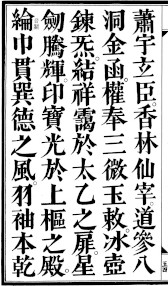 蕭宇立臣香林仙宰道參八
洞金函權奉三微玉敕冰壺
鍊炁結祥靄於太乙之扉星
劒騰輝印寶光於上樞之殿
綸巾貫巽德之風羽袖本乾